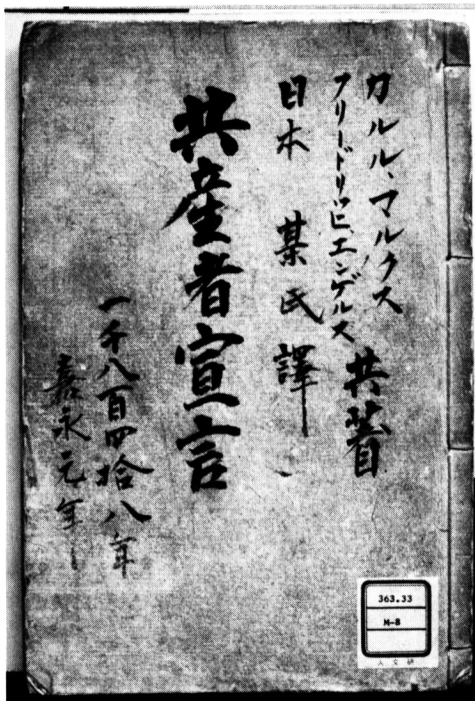 カルル、マルクス
フリードリッヒ、エンゲルス
共著
日本 某氏譯
共産者宣言
一千八百四拾八年
嘉永元年
363.33
M-8
人文研